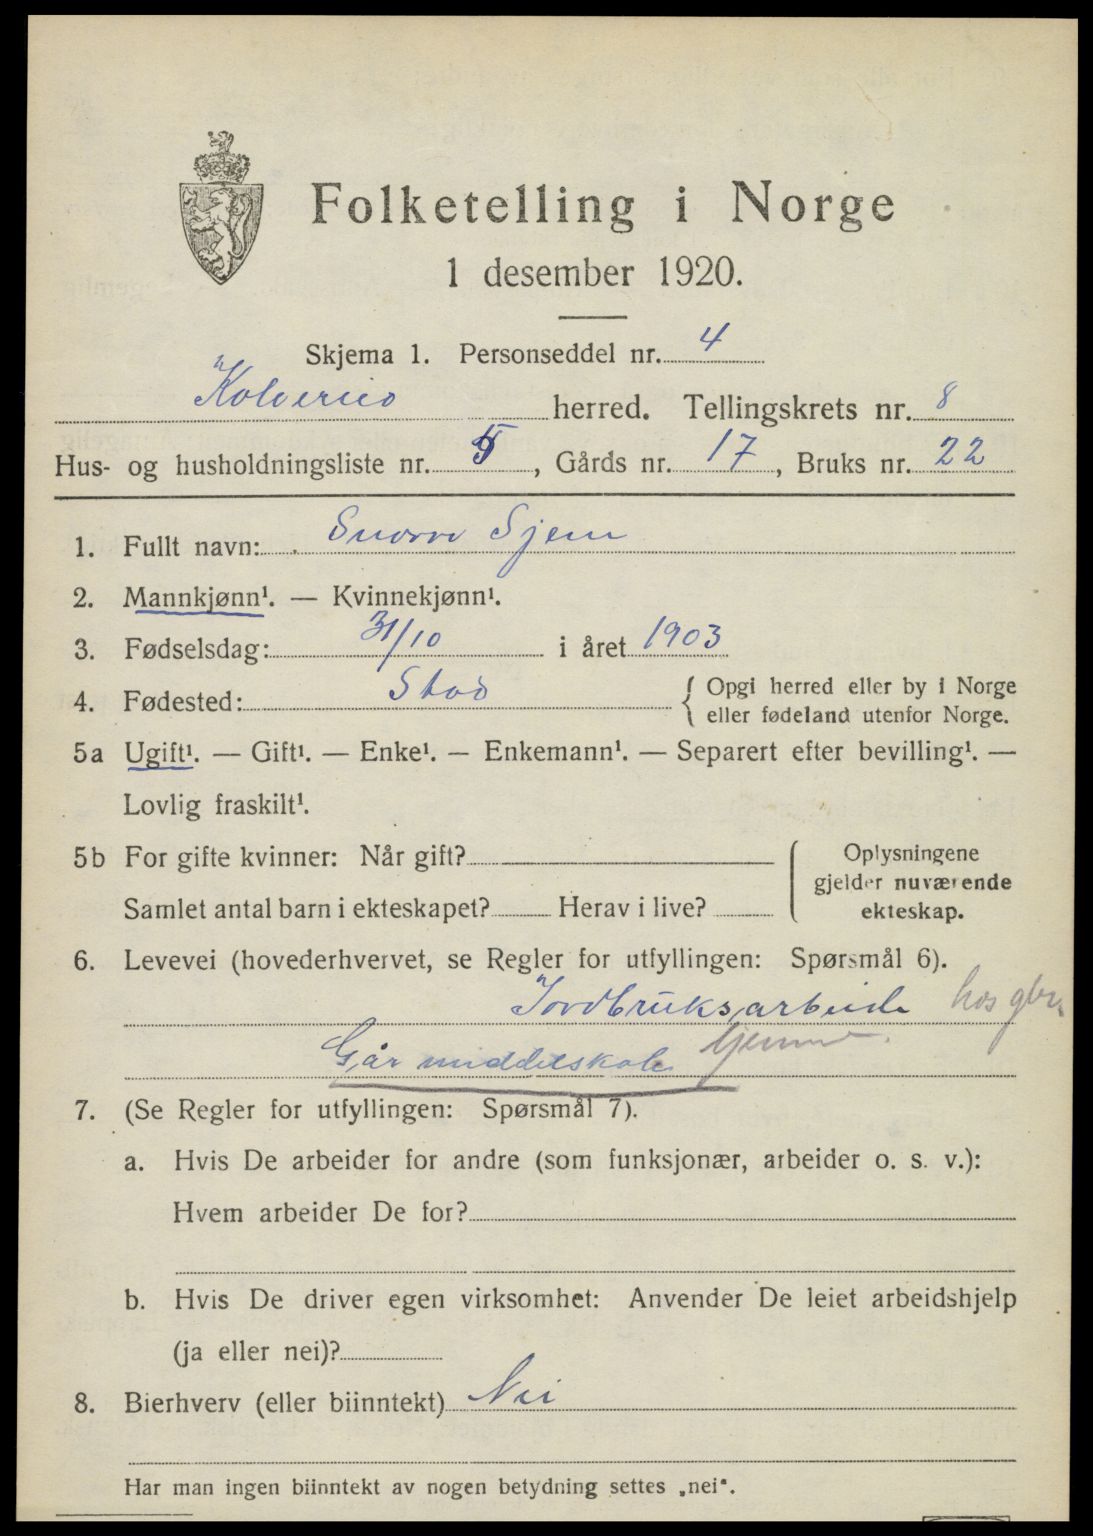 Folketelling i Norge
1 desember 1920.
Skjema 1. Personseddel nr. 4
Kolvereid herred. Tellingskrets nr. 8
Hus- og husholdningsliste nr. 5, Gårds nr. 17, Bruks nr. 22
1. Fullt navn: Snorre Gjem
2. Mannkjønn¹. — Kvinnekjønn¹.
3. Fødselsdag: 31/10 i året 1903
4. Fødested: Stod { Opgi herred eller by i Norge
eller fødeland utenfor Norge.
5a Ugift¹. — Gift¹. — Enke¹. — Enkemann¹. — Separert efter bevilling¹. —
Lovlig fraskilt¹.
5b For gifte kvinner: Når gift? Oplysningene
gjelder nuværende
Samlet antal barn i ekteskapet? Herav i live? ekteskap.
6. Levevei (hovederhvervet, se Regler for utfyllingen: Spørsmål 6).
Jordbruksarbeide hos
Går middelskole hjemme.
7. (Se Regler for utfyllingen: Spørsmål 7).
a. Hvis De arbeider for andre (som funksjonær, arbeider o. s. v.):
Hvem arbeider De for?
b. Hvis De driver egen virksomhet: Anvender De leiet arbeidshjelp
(ja eller nei)?
8. Bierhverv (eller biinntekt) Nei
Har man ingen biinntekt av nogen betydning settes „nei".